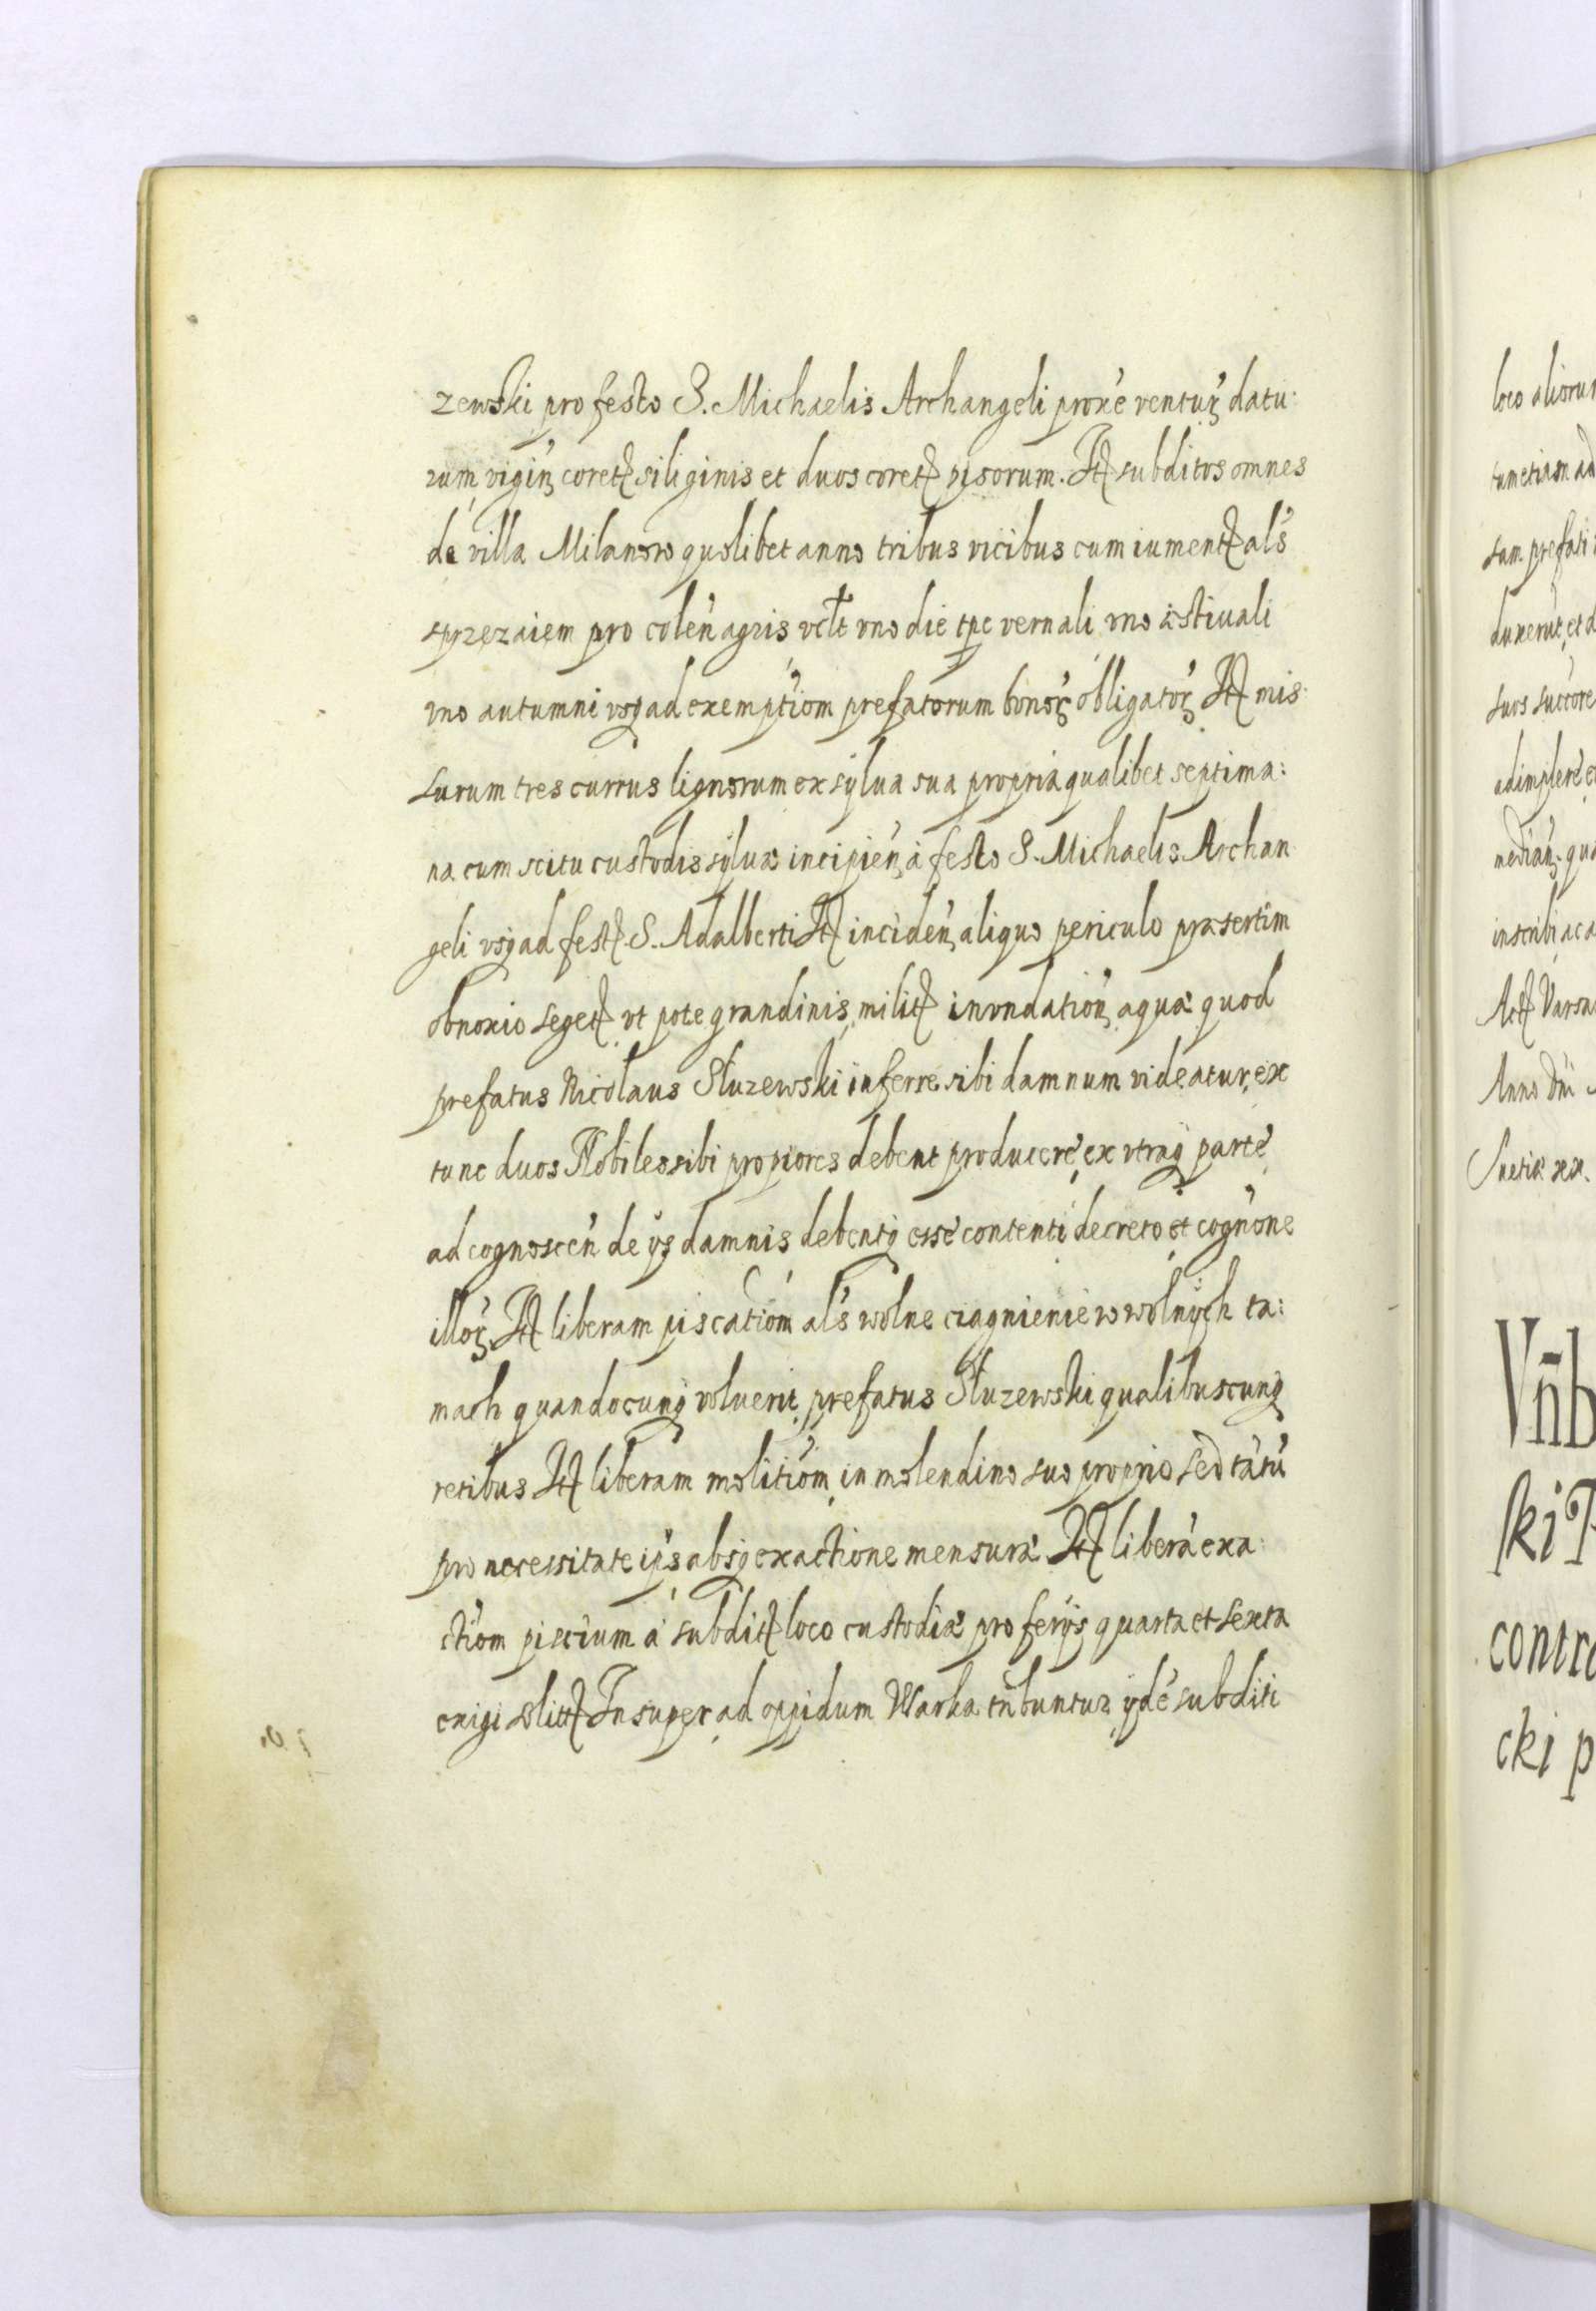 zewski pro festo S. Michaelis Archangeli proxè venturꝝ datu:
rum vigin coretꝭ siliginis et duos coretꝭ pisorum. Itꝭ subditos omnes
de villa Milanow quolibet anno tribus vicibus cum iumentꝭ al's
sprzezaiem pro colen' agris vclt vno die tpe vernali vno æstiuali
vno autumni vsqꝫ ad exempti'om prefatorum bonoꝝ obligatoꝝ Itꝭ mis:
surum tres currus lignorum ex sylua sua propria qualibet septima:
na cum scitu custodis syluæ incipien' à festo S. Michaelis Archan
geli vsqꝫ ad festꝭ S. Adalberti Itꝭ inciden' aliquo periculo præsertim
obnoxio segetꝭ vt pote grandinis, militꝭ invndation' aquæ quod
prefatus Nicolaus Słuzewski inferre sibi damnum videatur, ex
tunc duos Nobiles sibi propiores debent producere, ex vtraqꝫ parte
ad cognoscen' de ijs damnis debentqꝫ esse contenti decreto et cogn'one
illoꝝ Itꝭ liberam piscati'om al's wolne ciagnienie w wolnych ta:
mach quandocunqꝫ voluerit prefatus Słuzewski qualibuscunqꝫ
retibus Itꝭ liberam moliti'om in molendino suo proprio sed tãtũ
pro necessitate ip's absqꝫ exactione mensuræ Itꝭ liberã exa:
cti'om piscium à subditꝭ loco custodiæ pro ferijs quarta et sexta
exigi solittꝭ Insuper ad oppidum Warka tñbuntur ijdẽ subditi

loco alioru
tum etiam ad
sam prefati
duxerũt, et
suos succore
adimplere
median' qua
inscribi ac a
Actꝭ Varsa
Anno Dni
Suetiæ rex.
Vñb
ski P
contra
cki p